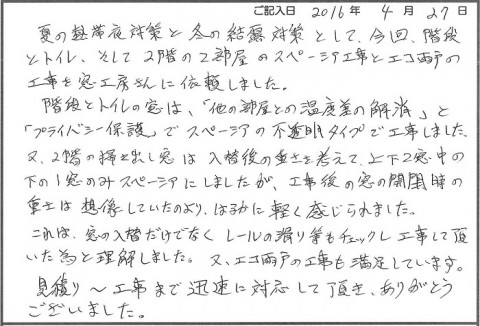 ご記入日 2016年 4月 27日
夏の熱帯夜対策と冬の結露対策として、今回、階段
とトイレ、そして2階の2部屋のスペーシア工事とエコ雨戸の
工事を窓工房さんに依頼しました。
階段とトイレの窓は、「他の部屋との温度差の解消」と
「プライバシー保護」でスペーシアの不透明タイプで工事しました。
又、2階の掃き出し窓は入替後の重さを考えて、上下2窓中の
下の1窓のみスペーシアにしましたが、工事後の窓の開閉時の
重さは想像していたのより、はるかに軽く感じられました。
これは、窓の入替だけでなくレールの滑り等もチェックし工事して頂
いた為と理解しました。又、エコ雨戸の工事も満足しています。
見積り〜工事まで迅速に対応して頂き、ありがとう
ございました。